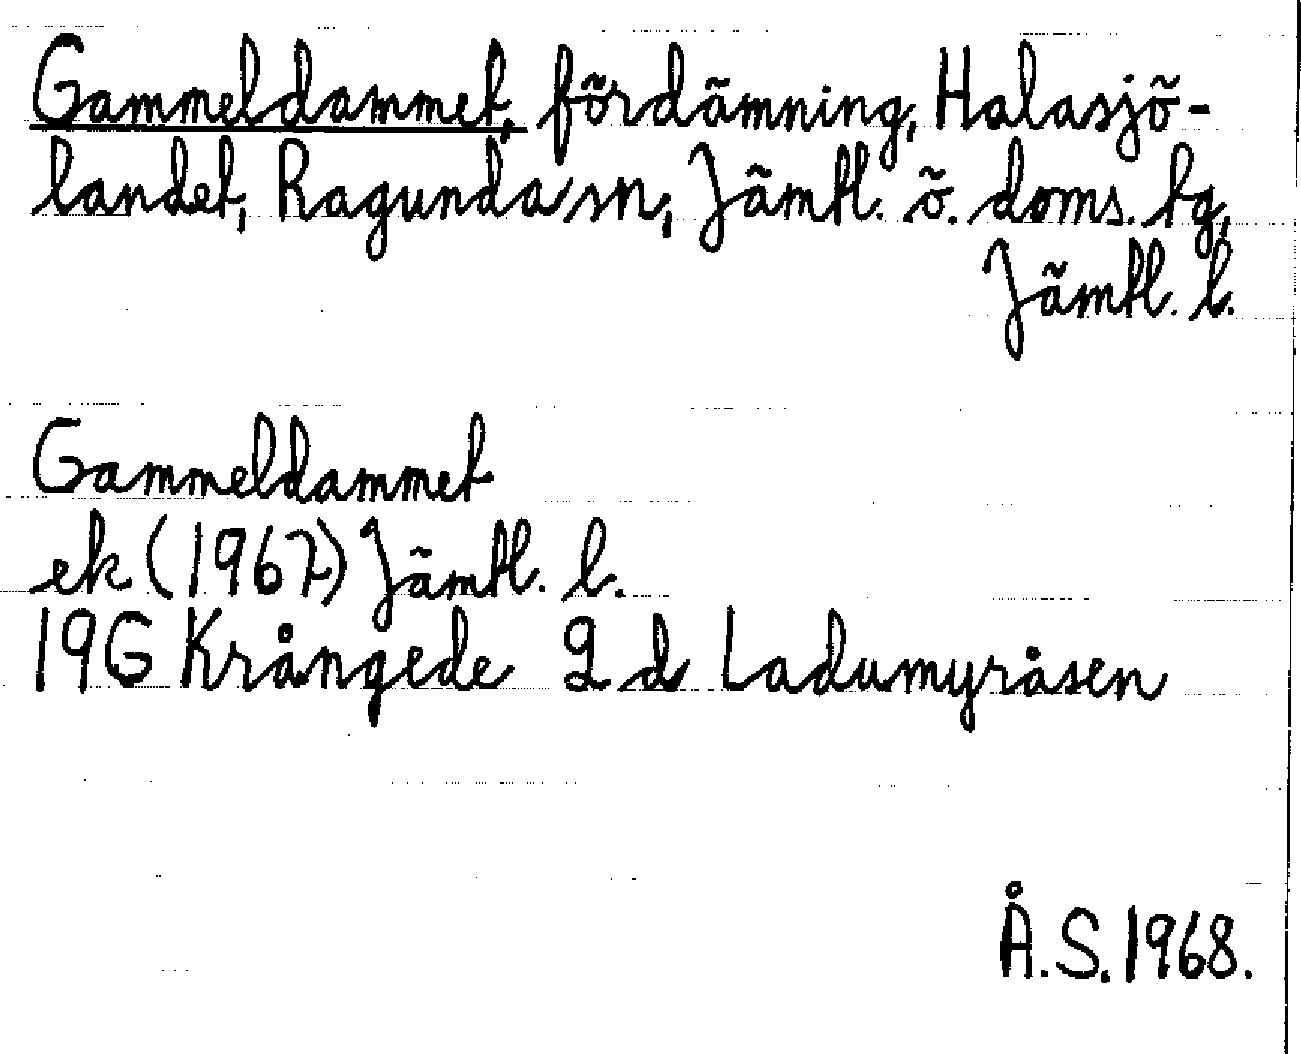 Gammeldammet, fördämning, Halasjö-
landet, Ragunda sn, Jämtl. ö. doms. tg,
Jämtl. l.
Gammeldammet
ek (1967) Jämtl. l.
19G Krångede 2 d Ladumyråsen
Å.S. 1968.